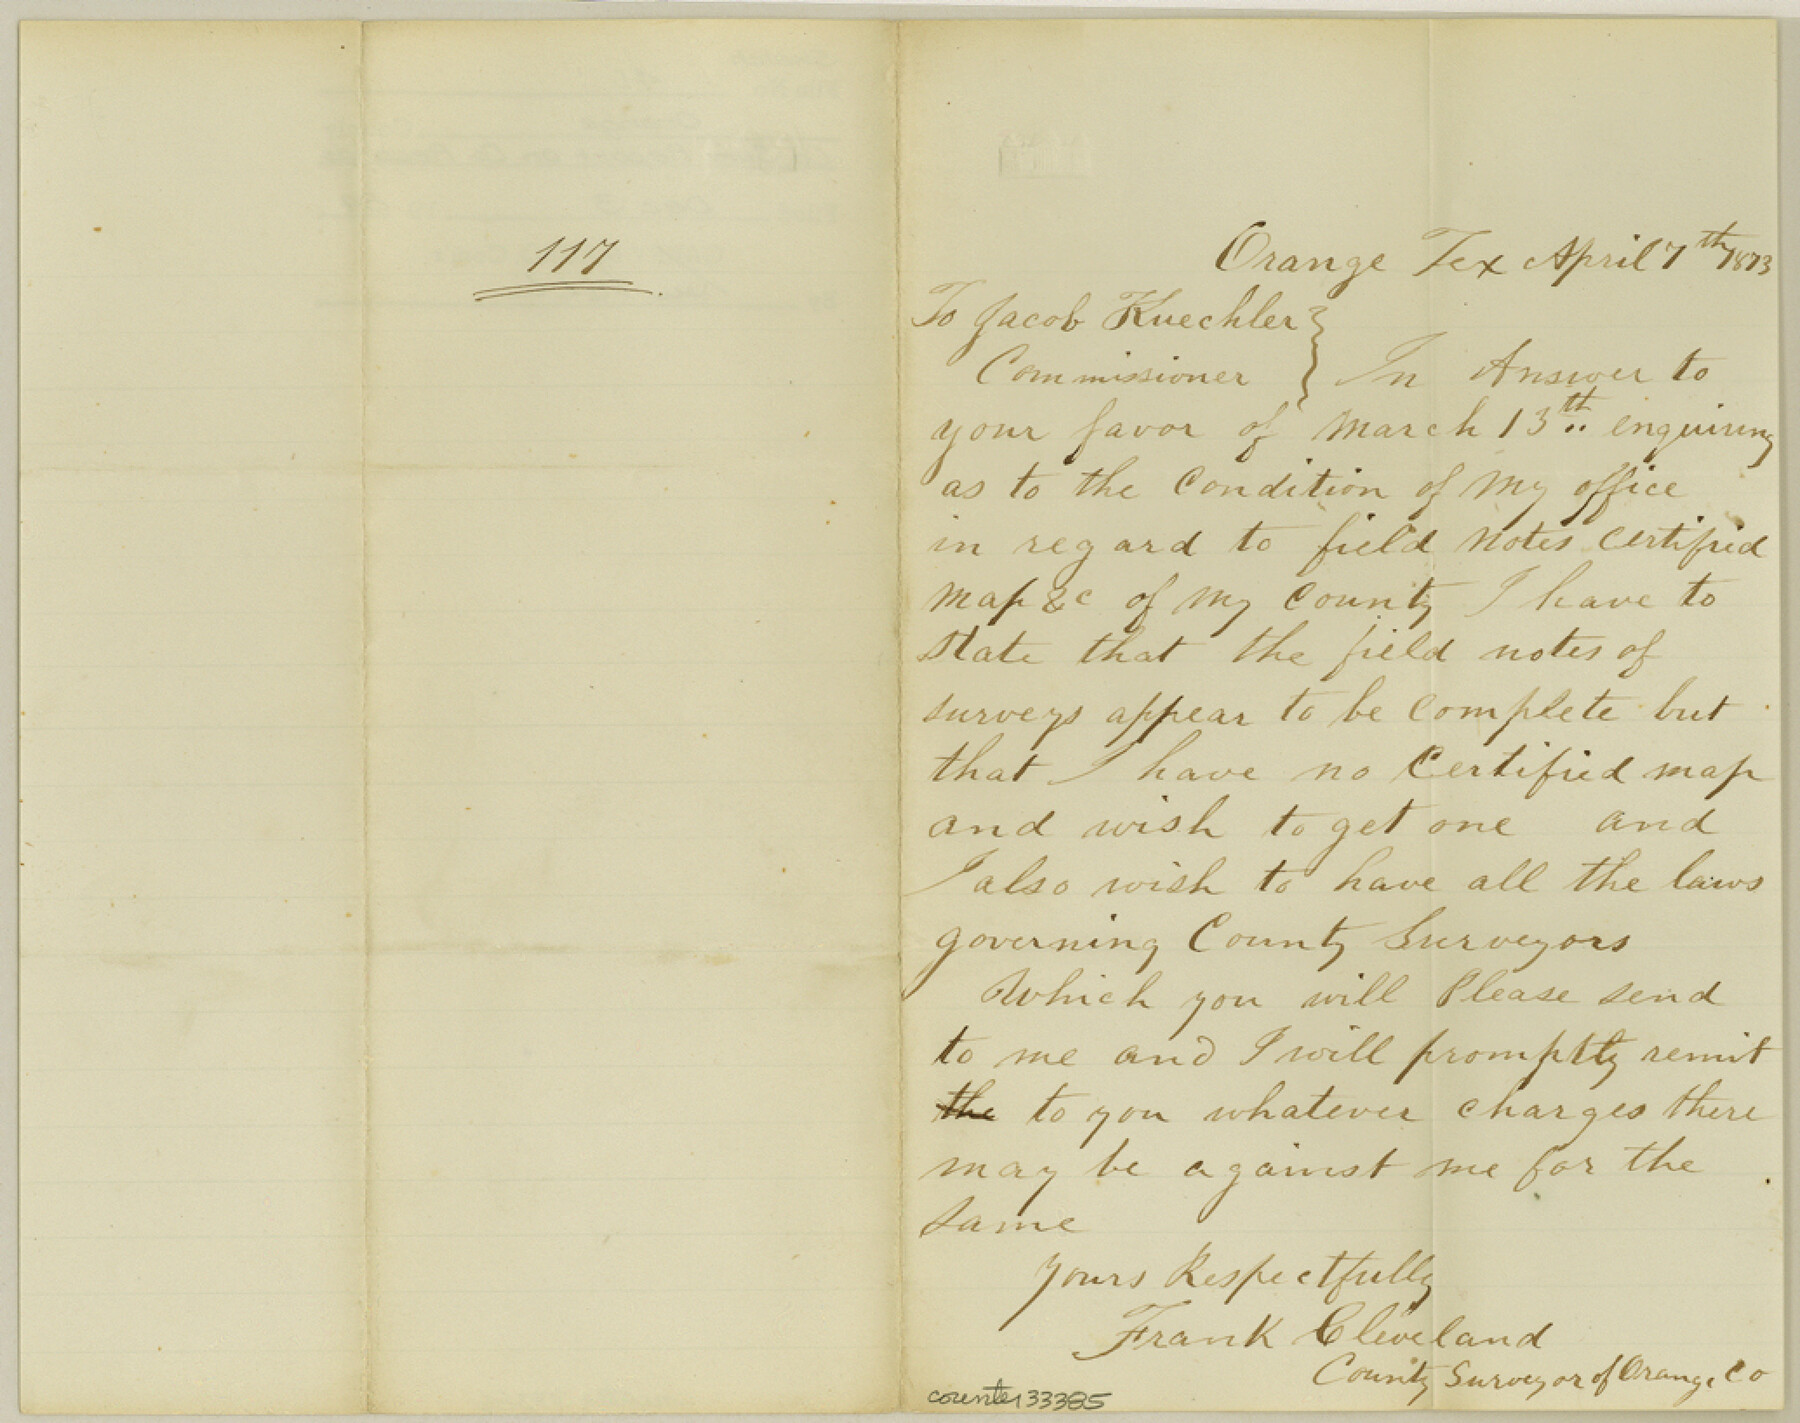 117
Orange Tex April 7th 1873
To Jacob Kuechler }
Commissioner } In Answer to
your favor of March 13th enquiring
as to the Condition of My office
in regard to field Notes Certified
Map &c of My County I have to
State that the field notes of
surveys appear to be Complete but
that I have no Certified map
and wish to get one and
I also wish to have all the laws
governing County Surveyors
Which you will Please send
to me and I will promptly remit
the to you whatever charges there
may be against me for the
Same
Yours Respectfully
Frank Cleveland
County Surveyor of Orange Co
counter 33385